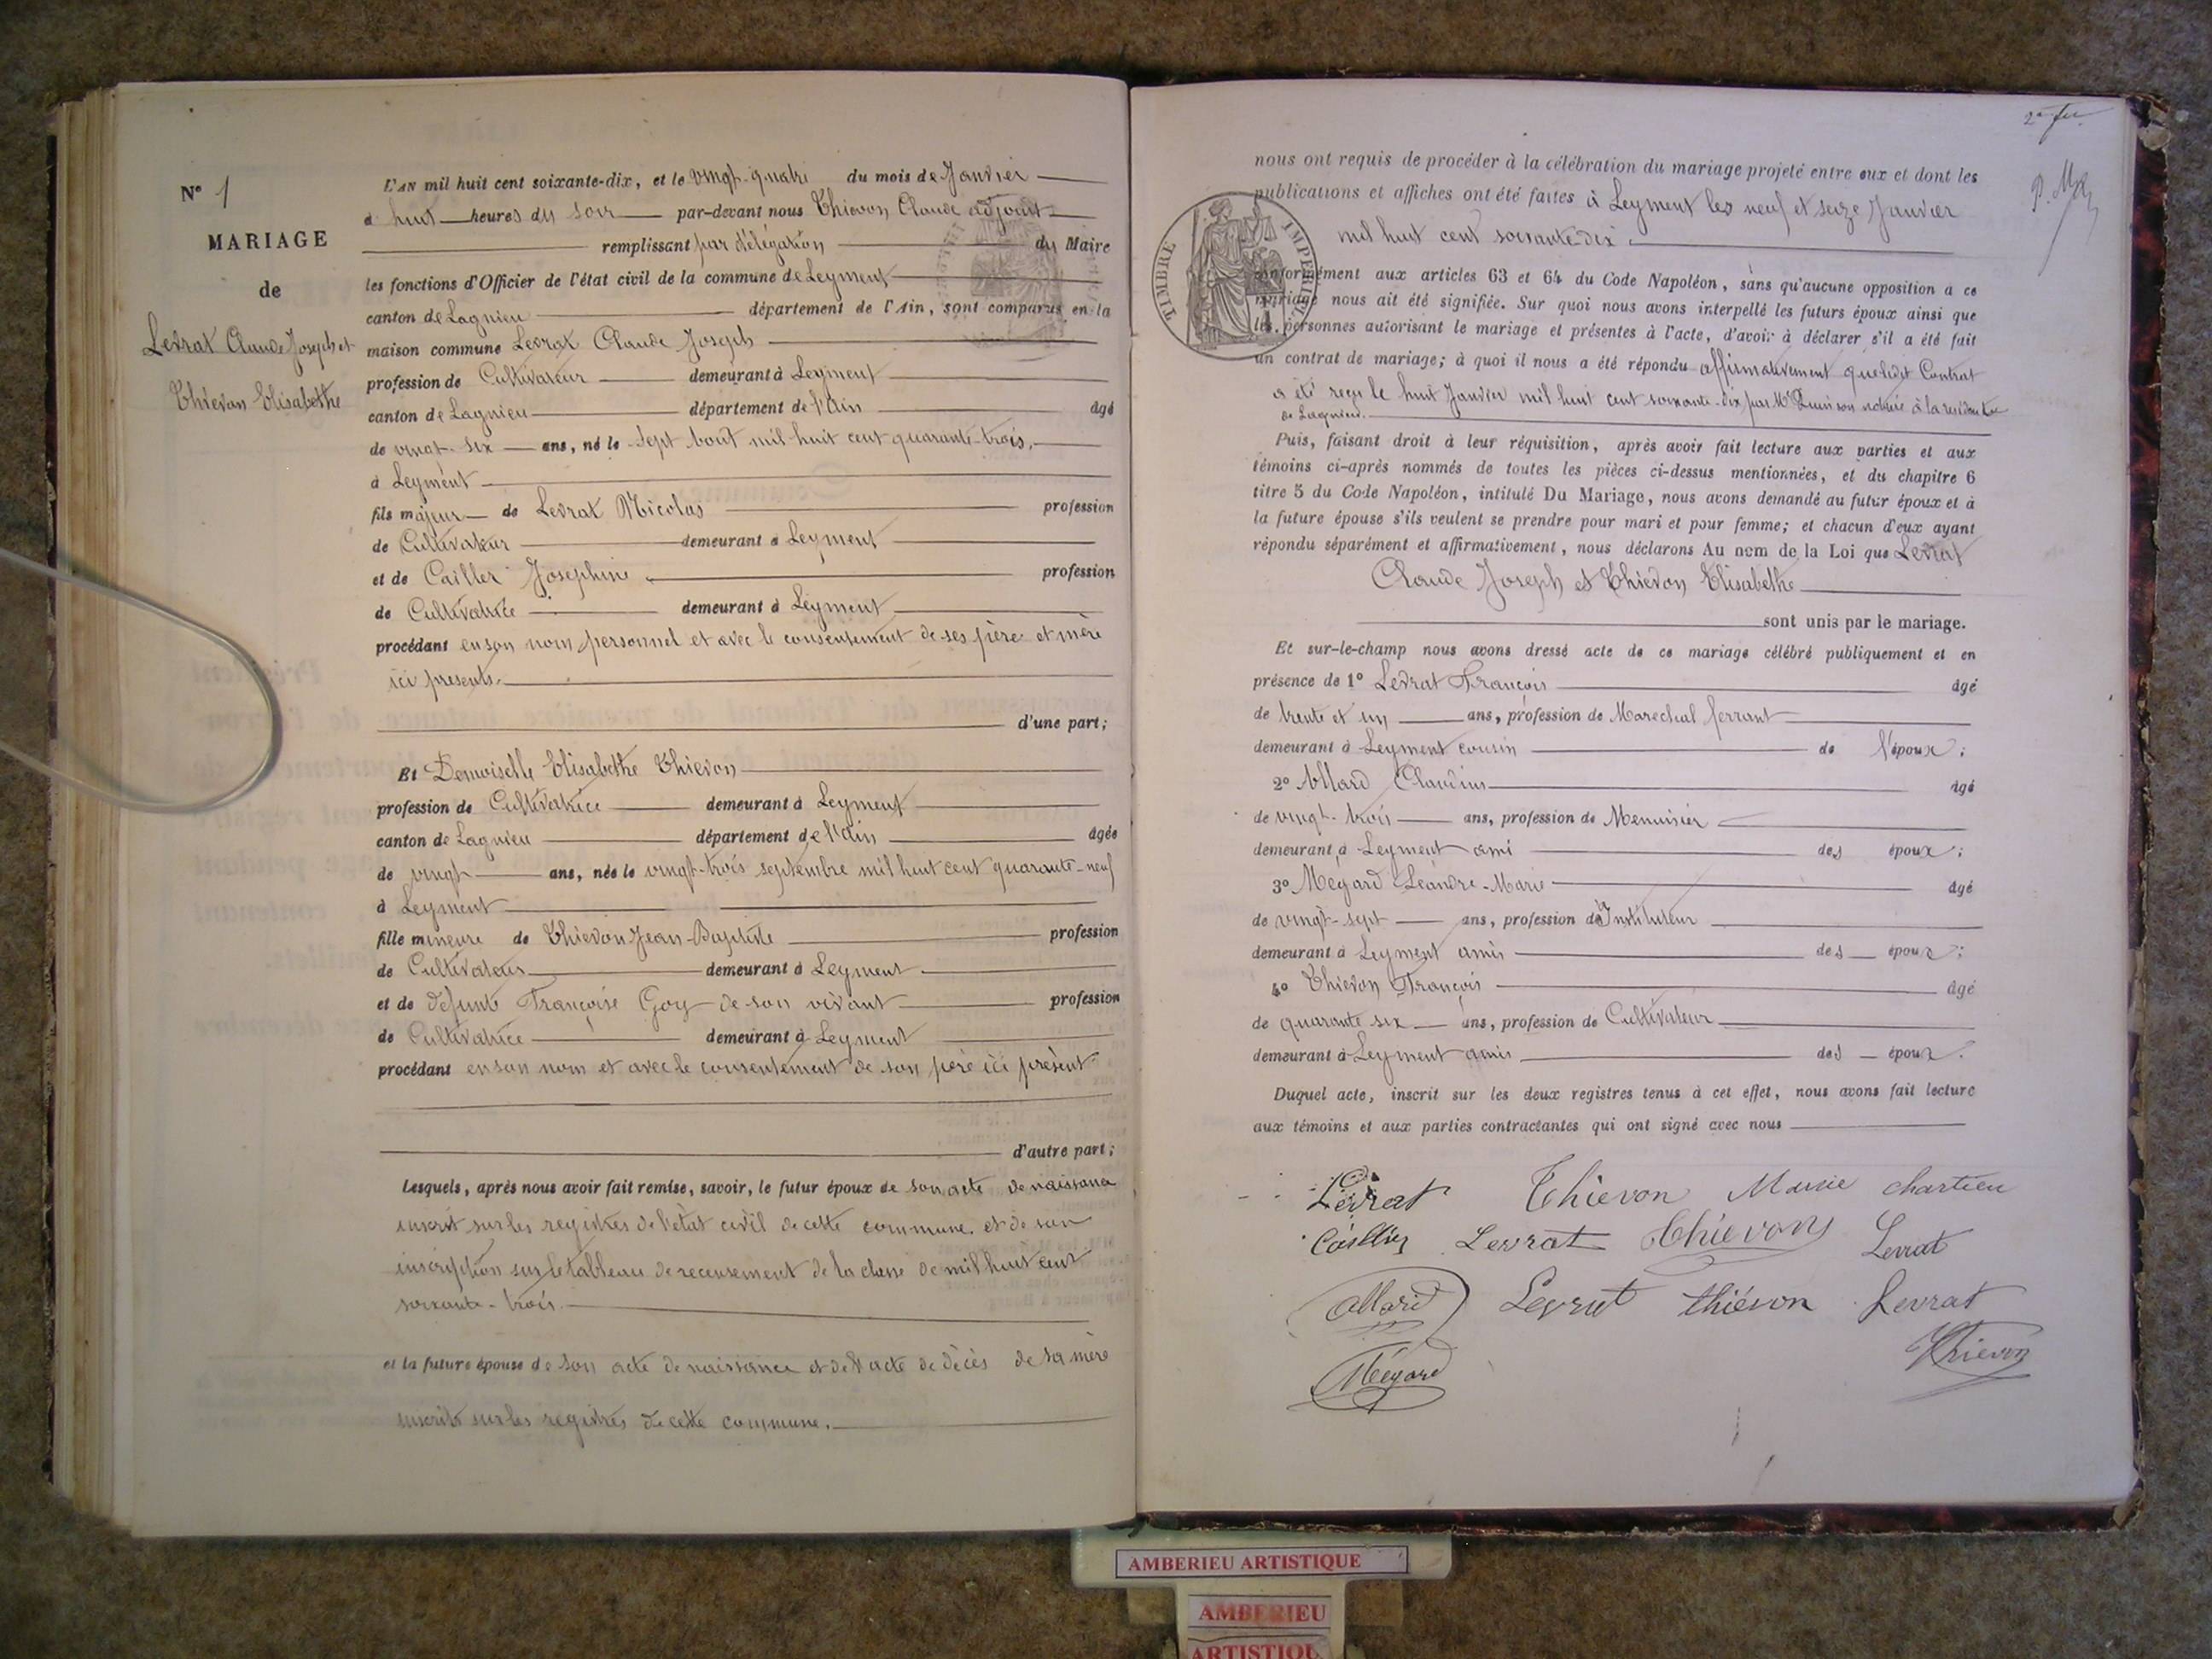 N° 1
MARIAGE
de
Levrat Claude Joseph et
Thievon Elisabethe
L'AN mil huit cent soixante-dix, et le vingt-quatre du mois de Janvier
à huit heures du soir par-devant nous Thievon Claude adjoint
remplissant par délégation du Maire
les fonctions d'Officier de l'état civil de la commune de Leyment
canton de Lagnieu département de l'Ain, sont comparus en la
maison commune Levrat Claude Joseph
profession de Cultivateur demeurant à Leyment
canton de Lagnieu département de l'Ain âgé
de vingt-six ans, né le sept Août mil huit cent quarante-trois,
à Leyment
fils majeur de Levrat Nicolas profession
de Cultivateur demeurant à Leyment
et de Cailler Josephine profession
de Cultivatrice demeurant à Leyment
procédant en son nom personnel et avec le consentement de ses père et mère
ici presents.
d'une part;
Et Demoiselle Elisabethe Thievon
profession de Cultivatrice demeurant à Leyment
canton de Lagnieu département de l'Ain âgée
de vingt ans, née le vingt-trois septembre mil huit cent quarante-neuf
à Leyment
fille mineure de Thievon Jean-Baptiste profession
de Cultivateur demeurant à Leyment
et de défunte Françoise Goy de son vivant profession
de Cultivatrice demeurant à Leyment
procédant en son nom et avec le consentement de son père ici présent
d'autre part;
Lesquels, après nous avoir fait remise, savoir, le futur époux de son acte de naissance
inscrit sur les registres de l'état civil de cette commune et de son
inscription sur le tableau de recensement de la classe de mil huit cent
soixante-trois.
et la future épouse de son acte de naissance et de l'acte de décès de sa mère
inscrits sur les registres de cette commune.
nous ont requis de procéder à la célébration du mariage projeté entre eux et dont les
publications et affiches ont été faites à Leyment les neuf et seize Janvier
mil huit cent soixante dix
TIMBRE IMPERIAL
conformément aux articles 63 et 64 du Code Napoléon, sans qu'aucune opposition a ce
mariage nous ait été signifiée. Sur quoi nous avons interpellé les futurs époux ainsi que
les personnes autorisant le mariage et présentes à l'acte, d'avoir à déclarer s'il a été fait
un contrat de mariage; à quoi il nous a été répondu affirmativement que ledit Contrat
a été reçu le huit Janvier mil huit cent soixante-dix par Me Quinson notaire à la résidence
de Lagnieu.
Puis, faisant droit à leur réquisition, après avoir fait lecture aux parties et aux
témoins ci-après nommés de toutes les pièces ci-dessus mentionnées, et du chapitre 6
titre 5 du Code Napoléon, intitulé Du Mariage, nous avons demandé au futur époux et à
la future épouse s'ils veulent se prendre pour mari et pour femme; et chacun d'eux ayant
répondu séparément et affirmativement, nous déclarons Au nom de la Loi que Levrat
Claude Joseph et Thievon Elisabethe
sont unis par le mariage.
Et sur-le-champ nous avons dressé acte de ce mariage célébré publiquement et en
présence de 1° Levrat François âgé
de trente et un ans, profession de Marechal ferrant
demeurant à Leyment cousin de l'époux;
2° Allard Claudius âgé
de vingt-trois ans, profession de Menuisier
demeurant à Leyment ami des époux;
3° Mégard Léandre-Marie âgé
de vingt-sept ans, profession d'Instituteur
demeurant à Leyment amis des époux;
4° Thievon François âgé
de quarante six ans, profession de Cultivateur
demeurant à Leyment amis des époux.
Duquel acte, inscrit sur les deux registres tenus à cet effet, nous avons fait lecture
aux témoins et aux parties contractantes qui ont signé avec nous
Levrat Thievon Marie chartieu
Caillier Levrat Thievon Levrat
Allard Levrat thiévon Levrat
Mégard Thievon
AMBERIEU ARTISTIQUE
AMBERIEU
ARTISTIQU